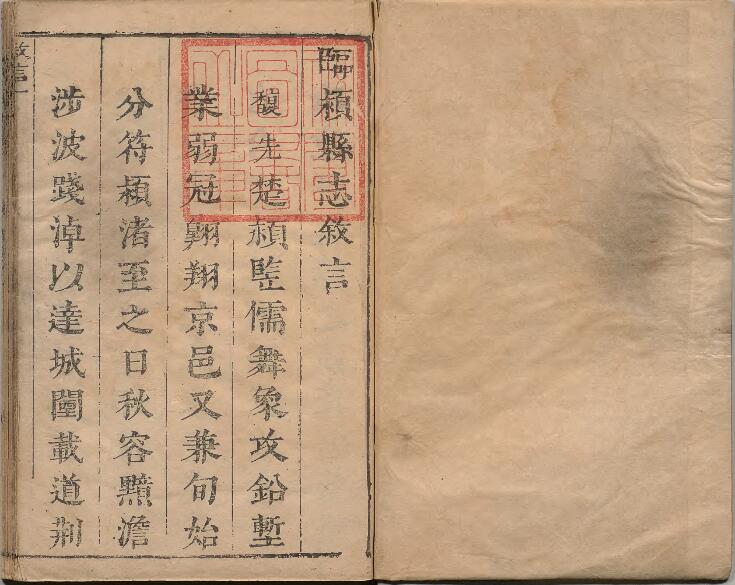 臨潁縣志敘言
馥先楚顓監儒舞象攻鉛塹
業弱冠翺翔京邑又兼旬始
分符潁渚至之日秋容黯澹
涉波踐淖以達城闉載道荆
敘言一